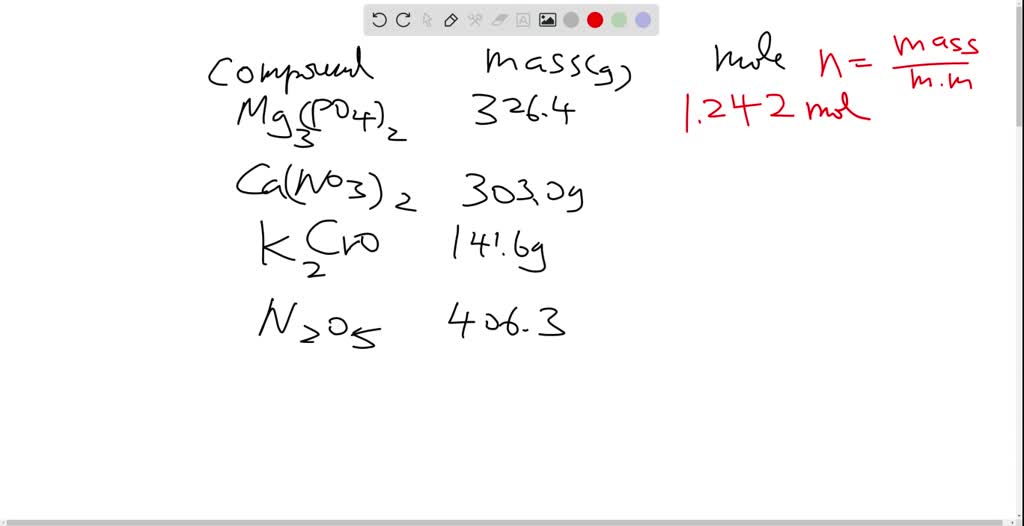 Compound mass(g) mole n = mass / m.m
Mg3(PO4)2 326.4 1.242 mol
Ca(NO3)2 303.0g
K2CrO 141.6g
N2O5 406.3